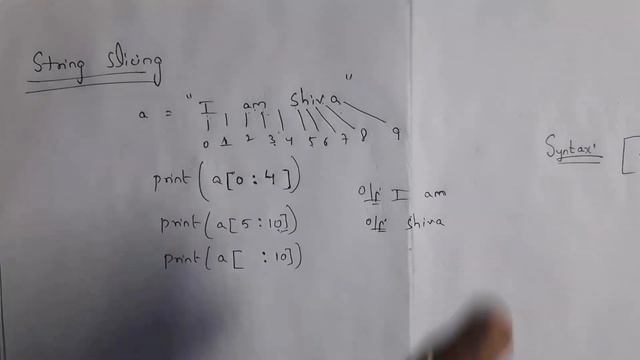 String Slicing
a = "I am Shiva"
0 1 2 3 4 5 6 7 8 9
print(a[0:4])
O/p: I am
print(a[5:10])
O/p: Shiva
print(a[ :10])
Syntax: [